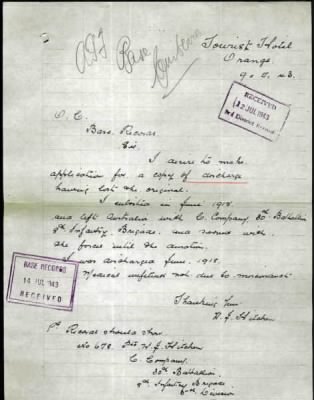 A.I.F
Base
Tourist Hotel
Orange
RECEIVED
12 JUL 1943
3rd District Record
O. C.
Base Records
Sir
I desire to make
application for a copy of discharge
having lost the original.
I enlisted in June
and left Australia with C. Company 30th Battalion
8th Infantry Brigade and served with
the forces until the
I was discharged June. 1918.
Medical unfitness not due to misconduct
BASE RECORDS
14 JUL 1943
RECEIVED
Thanking You
W. J.
Ps Records should show
No 678. Pte W. J.
C. Company
30th Battalion
8th Infantry Brigade
Division